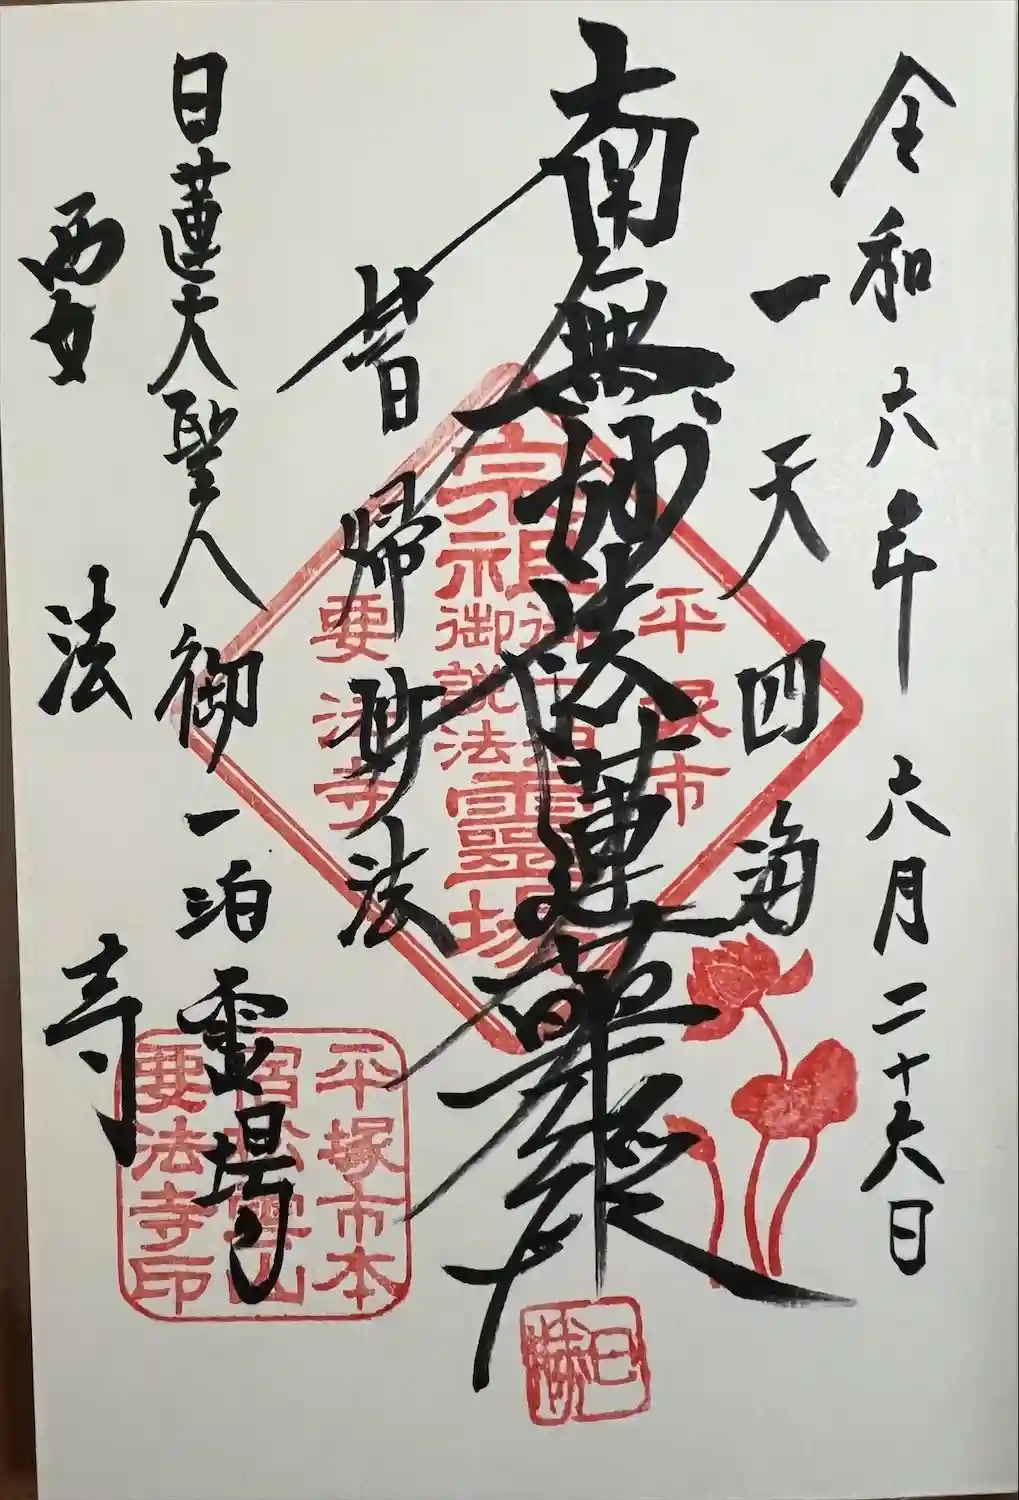 令和六年六月二十六日
一天四海
南無妙法蓮華経
皆帰妙法
日蓮大聖人御一泊霊場
要法寺
平塚市
宗祖
御説法
霊場
要法寺
平塚市本
宿松雲山
要法寺印
日